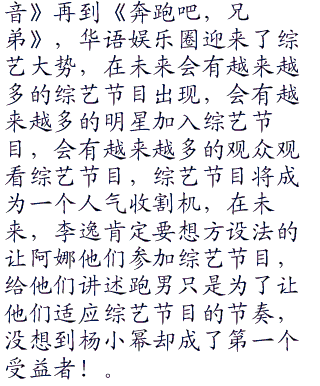 音》再到《奔跑吧，兄
弟》，华语娱乐圈迎来了综
艺大势，在未来会有越来越
多的综艺节目出现，会有越
来越多的明星加入综艺节
目，会有越来越多的观众观
看综艺节目，综艺节目将成
为一个人气收割机，在未
来，李逸肯定要想方设法的
让阿娜他们参加综艺节目，
给他们讲述跑男只是为了让
他们适应综艺节目的节奏，
没想到杨小幂却成了第一个
受益者！。